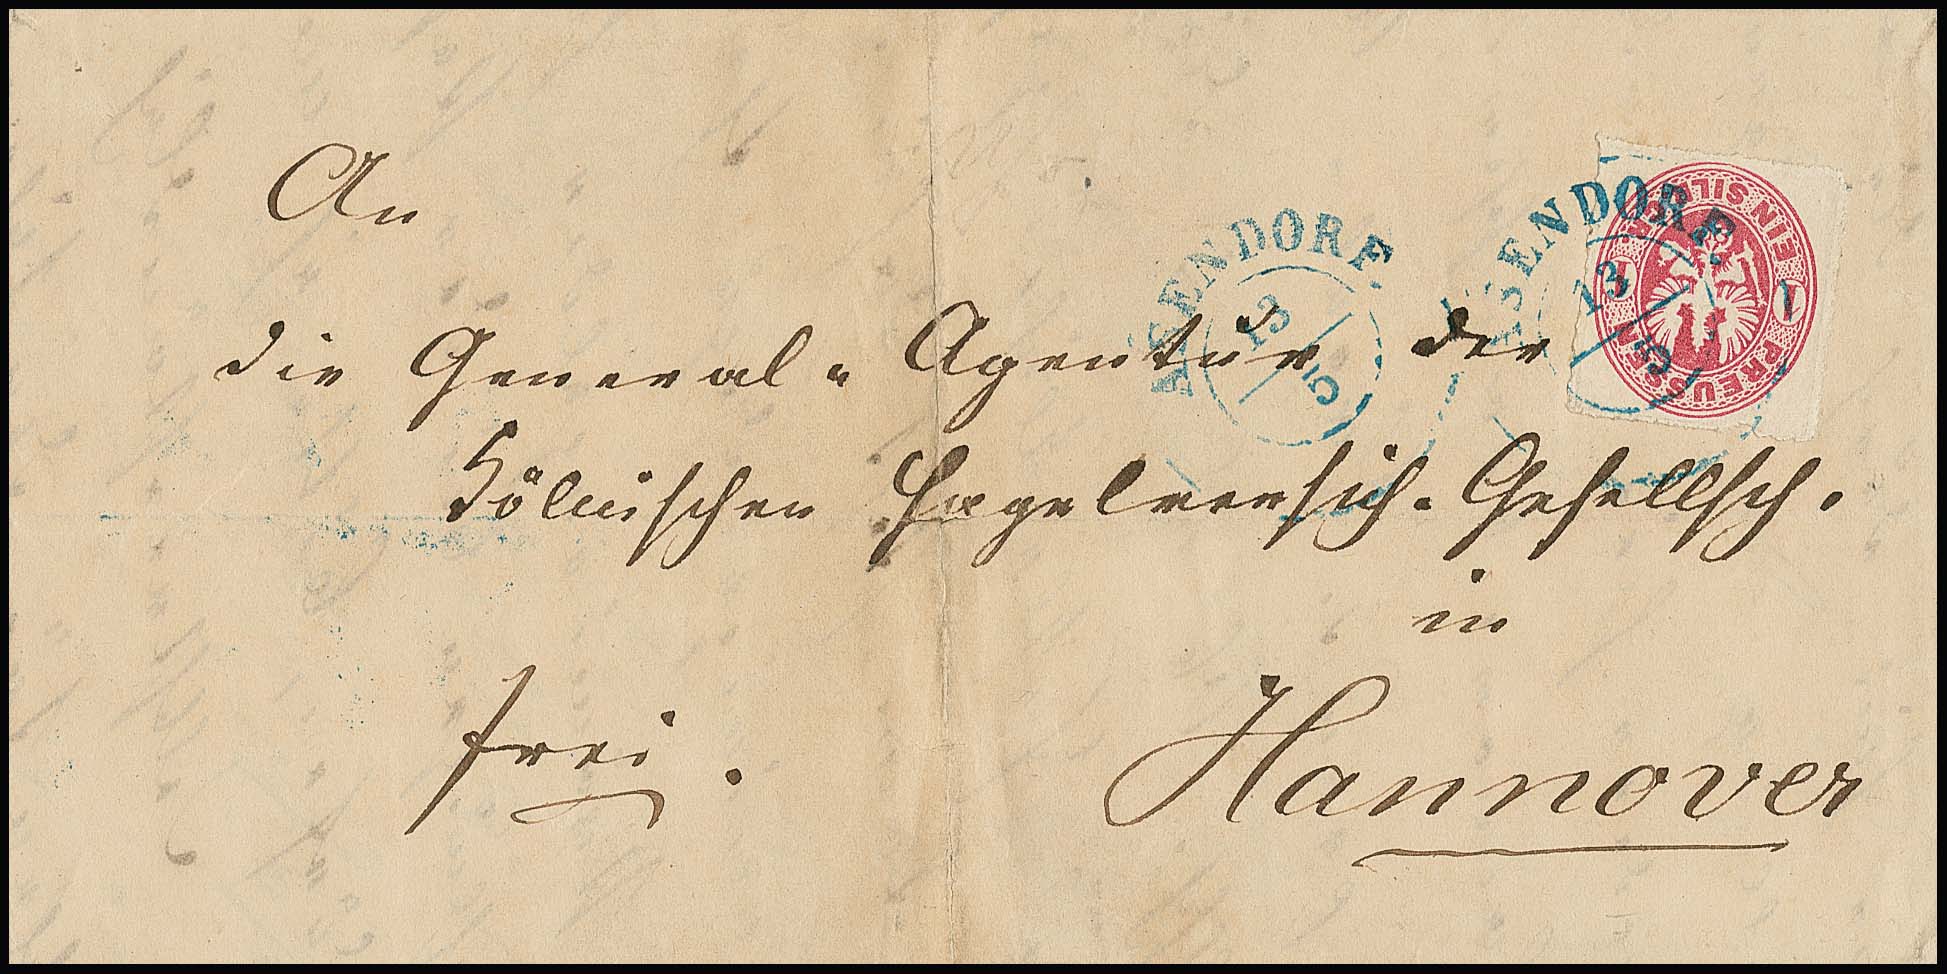 An
die General-Agentur der
Cölnischen Hagelversich. Gesellsch.
in
Hannover
frei.
SENDORF
13
5
SENDORF
13
5
PREUSSEN
EIN SILB. GR.
1
1